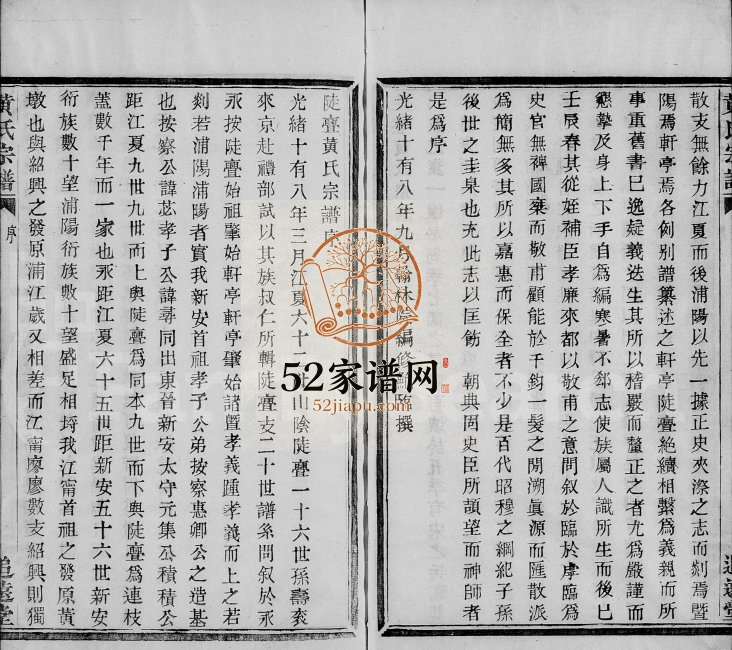 散支無餘力江夏而後浦陽以先一據正史夾漈之志而剡焉暨
陽焉軒亭焉各例別譜纂述之軒亭陡亹絶續相繫爲義親而所
事重舊書巳逸疑義迭生其所以稽覈而釐正之者尤爲嚴謹而
懇摯及身上下手自爲編寒暑不郤志使族屬人識所生而後巳
壬辰春其從姪補臣孝廉來都以敬甫之意問叙於臨於虖臨爲
史官無裨國棄而敬甫顧能於千鈞一髮之閒溯眞源而匯散派
爲簡無多其所以嘉惠而保全者不少是百代昭穆之綱紀子孫
後世之圭臬也充此志以匡飭 朝典固史臣所顗望而神師者
是爲序
光緒十有八年九 翰林院編修 撰
陡亹黃氏宗譜
光緒十有八年三月江夏六十二 山陰陡亹一十六世孫壽袞
來京赴禮部試以其族叔仁所輯陡亹支二十世譜系問叙於永
永按陡亹始祖肇始軒亭軒亭肇始諸暨孝義踵孝義而上之若
剡若浦陽浦陽者實我新安首祖孝子公弟按察惠卿公之造基
也按察公諱苾孝子公諱尋同出東晉新安太守元集公積積公
距江夏九世九世而上與陡亹爲同本九世而下與陡亹爲連枝
蓋數千年而一家也永距江夏六十五世距新安五十六世新安
衍族數十望浦陽衍族數十望盛足相埒我江甯首祖之發原黃
墩也與紹興之發原浦江歲又相差而江甯廖廖數支紹興則獨
黃氏宗譜
序
追遠堂
黃氏宗譜
追遠堂
52家谱网
52jiapu.com